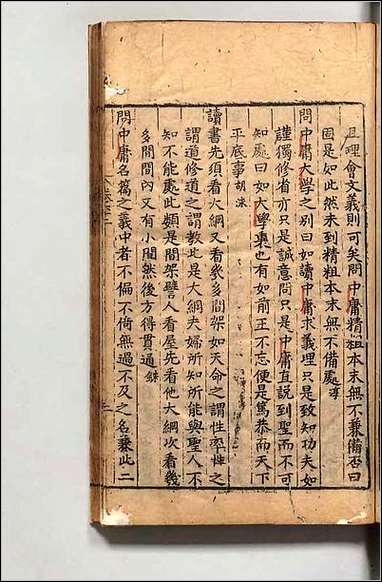 且理會文義則可矣問中庸精粗本末無不兼備否曰
固是如此然未到精粗本末無不備處淳
問中庸大學之別曰如讀中庸求義理只是致知功夫如
謹獨修省亦只是誠意問只是中庸直說到聖而不可
知處曰如大學裏也有如前王不忘便是篤恭而天下
平底事胡泳
讀書先須看大綱又看幾多間架如天命之謂性率性之
謂道修道之謂教此是大綱夫婦所知所能與聖人不
知不能處此類是間架譬人看屋先看他大綱次看幾
多間間內又有小間然後方得貫通銖
問中庸名篇之義中者不偏不倚無過不及之名兼此二